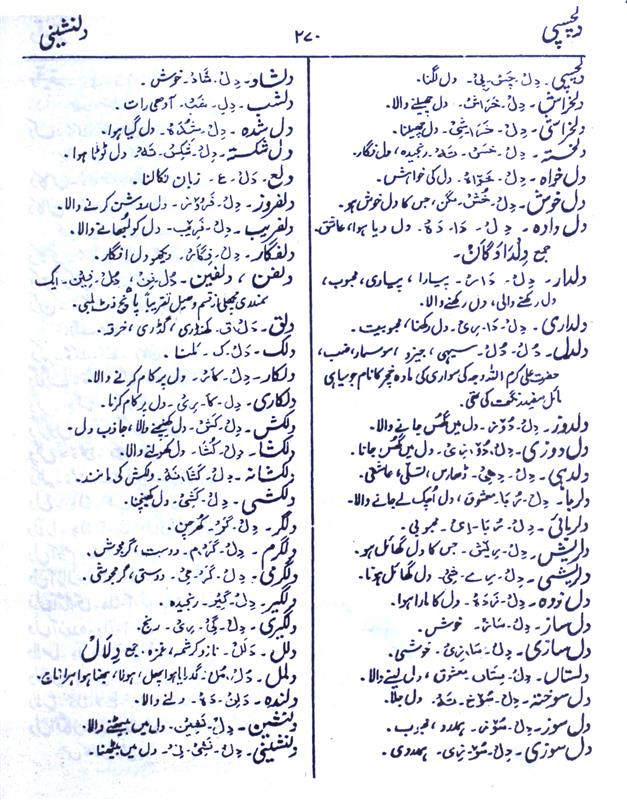 دلچسپی
۲۷۰
دلنشینی
دلچسپی۔ دِل۔ چَس۔ پی۔ دل لگنا۔
دلخراش۔ دِل۔ خَرَاش۔ دل چھیلنے والا۔
دلخراشی۔ دِل۔ خَرَا۔ شِی۔ دل چھیلنا۔
دلخستہ۔ دِل۔ خَس۔ تَہ۔ رنجیدہ، دل فگار۔
دل خواہ۔ دِل۔ خَوَاہ۔ دل کی خواہش۔
دل خوش۔ دِل۔ خُوش۔ مگن، جس کا دل خوش ہو۔
دل دادہ۔ دِل۔ دَا۔ دَہ۔ دل دیا ہوا، عاشق۔
جمع دِلْدَادگان۔
دلدار۔ دِل۔ دَار۔ پیارا، پیاری، محبوب،
دل رکھنے والی، دل رکھنے والا۔
دلداری۔ دِل۔ دَا۔ رِی۔ دل رکھنا، محبوبیت۔
دلدل۔ دُل۔ دُل۔ سیہی، جیزد، سوسمار، ضب،
حضرت علی کرم اللہ وجہ کی سواری کی مادہ خچر کا نام جو سیاہی
مائل سفید رنگت کی تھی۔
دلدوز۔ دِل۔ دُوز۔ دل میں گھس جانے والا۔
دل دوزی۔ دِل۔ دُو۔ زِی۔ دل میں گھس جانا۔
دلدہی۔ دِل۔ دِہِی۔ ڈھارس، تسلی، عاشقی۔
دلربا۔ دِل۔ رُبَا۔ معشوق، دل اچک لے جانے والا۔
دلربائی۔ دِل۔ رُبَا۔ اِی۔ محبوبی۔
دلریش۔ دِل۔ رِیش۔ جس کا دل گھائل ہو۔
دلریشی۔ دِل۔ رِے۔ شِی۔ دل گھائل ہونا۔
دل زدہ۔ دِل۔ زَدَہ۔ دل کا مارا ہوا۔
دل ساز۔ دِل۔ سَاز۔ خوش۔
دل سازی۔ دِل۔ سَا۔ زِی۔ خوشی۔
دلستاں۔ دِل۔ سِتَاں۔ معشوق، دل لینے والا۔
دل سوختہ۔ دِل۔ سُوخ۔ تَہ۔ دل جلا۔
دل سوز۔ دِل۔ سُوز۔ ہمدرد، محبوب۔
دل سوزی۔ دِل۔ سُو۔ زِی۔ ہمدردی۔
دلشاد۔ دِل۔ شَاد۔ خوش۔
دلشب۔ دِلِ۔ شَب۔ آدھی رات۔
دل شدہ۔ دِل۔ شُدَہ۔ دل گیا ہوا۔
دل شکستہ۔ دِل۔ شِکَس۔ تَہ۔ دل ٹوٹا ہوا۔
دلع۔ دَل۔ ع۔ زبان نکالنا۔
دلفروز۔ دِل۔ فَرُوز۔ دل روشن کرنے والا۔
دلفریب۔ دِل۔ فَرِیب۔ دل کو لبھانے والا۔
دلفگار۔ دِل۔ فِگَار۔ دیکھو دل افگار۔
دلفن، دلفین۔ دُل۔ فِن، دُل۔ فِین۔ ایک
سمندری مچھلی از قسم وھیل تقریباً پانچ فٹ لمبی۔
دلق۔ دَل۔ ق۔ گدڑی، خرقہ۔
دلک۔ دَل۔ ک۔ مَلنا۔
دلکار۔ دِل۔ کار۔ دل پر کام کرنے والا۔
دلکاری۔ دِل۔ کا۔ رِی۔ دل پر کام کرنا۔
دلکش۔ دِل۔ کَش۔ دل کھینچنے والا، جاذب دل۔
دلکشا۔ دِل۔ کُشَا۔ دل کھولنے والا۔
دلکشانہ۔ دِل۔ کَشَا۔ نَہ۔ دلکش کی مانند۔
دلکشی۔ دِل۔ کَشِی۔ دل کھینچنا۔
دلگر۔ دِل۔ گَر۔
دلگرم۔ دِل۔ گَر۔ م۔ دوست، گرمجوش۔
دلگرمی۔ دِل۔ گَر۔ مِی۔ دوستی، گرمجوشی۔
دلگیر۔ دِل۔ گِیر۔ رنجیدہ۔
دلگیری۔ دِل۔ گی۔ رِی۔ رنج۔
دلل۔ دَلَل۔ ناز و کرشمہ، غمزہ۔ جمع دِلَال۔
دلمل۔ دُل۔ مُل۔ گدرایا ہوا پھل، ہونا، بھنا ہوا ہرا اناج۔
دلندہ۔ دَلَن۔ دَہ۔ دلنے والا۔
دلنشین۔ دِل۔ نَشِین۔ دل میں بیٹھنے والا۔
دلنشینی۔ دِل۔ نَشِی۔ نِی۔ دل میں بیٹھنا۔